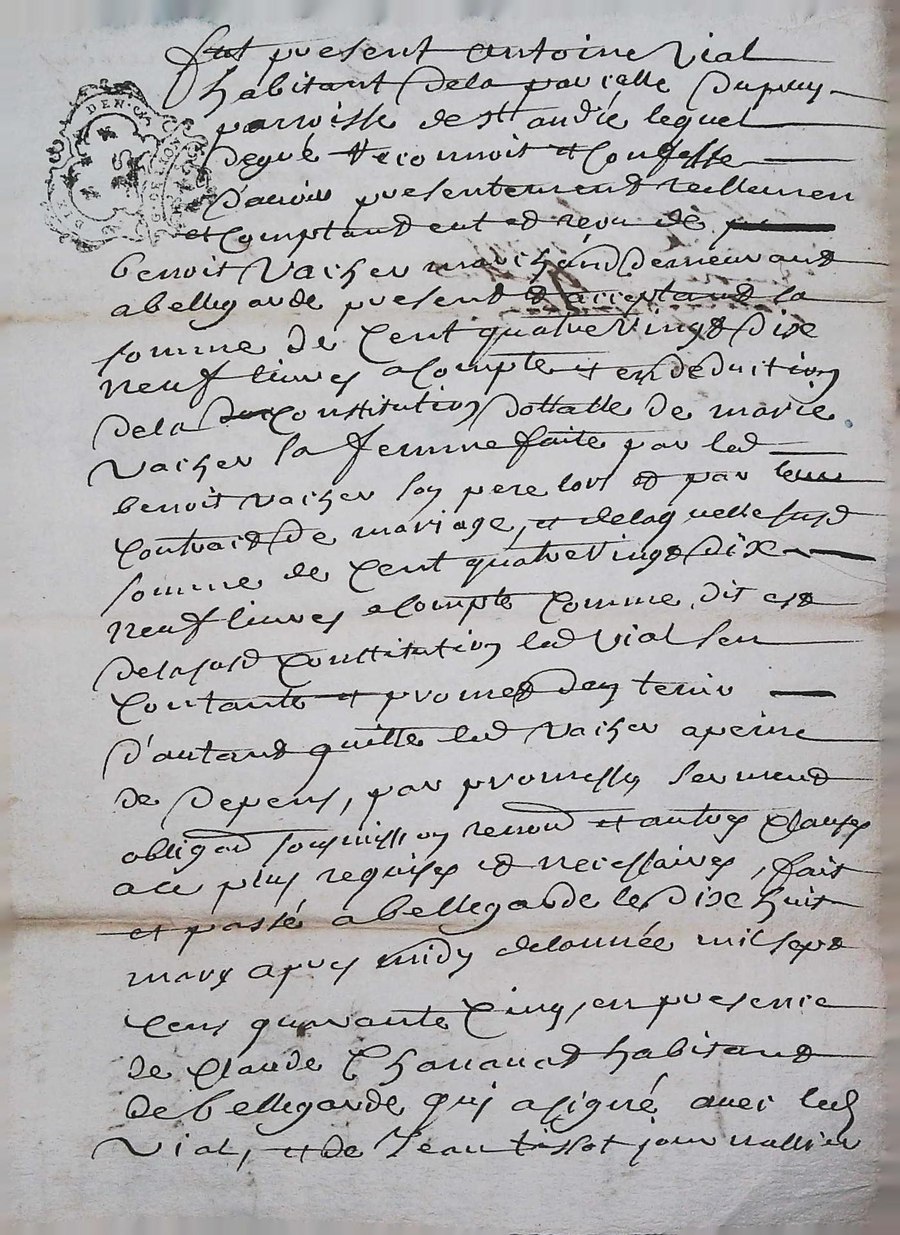 fut present antoine Vial
habitant dela parcelle Dupuy
parroisse de st andré lequel
degré & reconnoit et Confesse
D'avoir presentement reellemen
et Comptand eut et reçu de
benoit Vacher marchand demeurand
a bellegarde present et acceptand la
somme de Cent quatre Vingt Dix
neuf livres a Compte et en deduction
dela Constitution dottalle de marie
Vacher sa femme faite par led
benoit vacher son pere lors et par leur
Contract De mariage, et delaquelle susd
somme de Cent quatre Vingt Dix
neuf livres a Compte Comme dit est
delasusd Constitution led Vial sen
Contante et promet d'en tenir
D'autand quitte led Vacher a peine
de Depens, par promesses serment
obligaõ soumission renonõ et autres Clauses
a ce plus requises et necessaires, fait
et passé a bellegarde le Dix huit
mars apres midy delannée mil sept
Cens quarante Cinq en presence
de Claude habitand
de bellegarde qui a signé avec led
Vial, et de Jean tissot journallier
DEN
G·DE LION